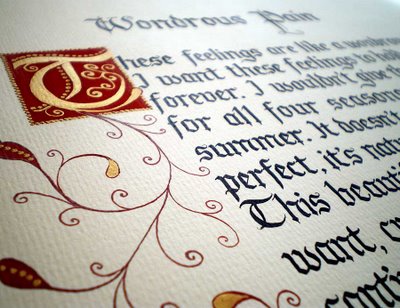 Wondrous Pain
These feelings are like a wondrous
I want these feelings to
forever. I wouldn't give
for all four seasons
summer. It doesn't
perfect, it's
This
want,